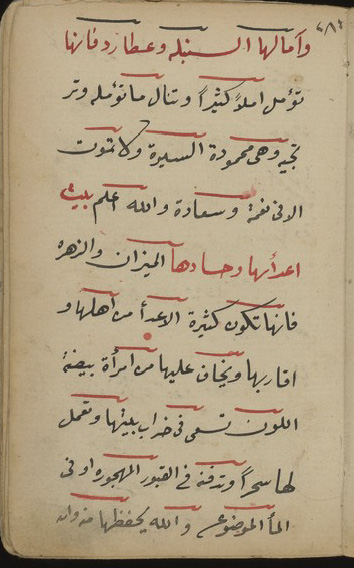 وآمالها السنبله وعطارد فانها
تؤمل املاً كثيراً وتنال ما تؤمله وتر
تجيه وهي محمودة السيرة ولا تموت
الا في نعمة وسعادة والله اعلم بيت
اعدائها وحسادها الميزان والزهره
فانها تكون كثيرة الاعدأ من اهلها و
اقاربها ويخاف عليها من امرأة بيضة
اللون تسعى في خراب بيتها وتعمل
لها سحراً وتدفنه في القبور المهجوره او في
المأ الموضوع والله يحفظها منه